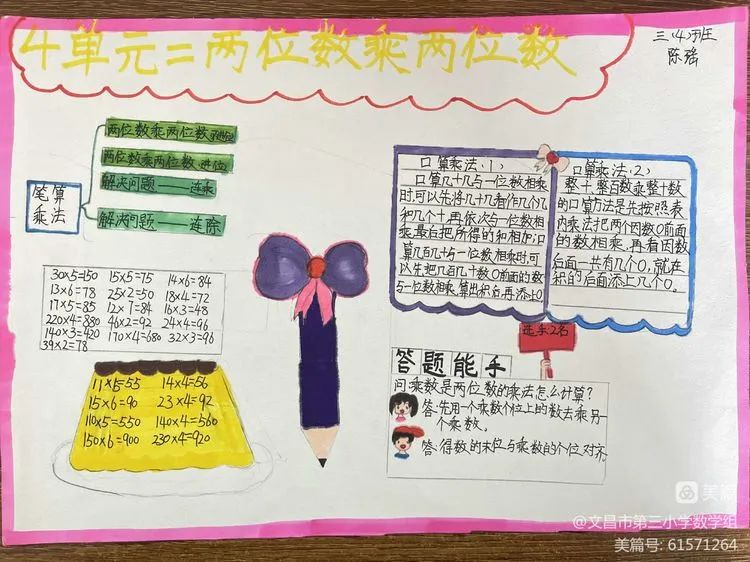 4单元二两位数乘两位数
三(4)班
陈瑶
笔算
乘法
两位数乘两位数 不进位
两位数乘两位数 进位
解决问题——连乘
解决问题——连除
30×5=150 15×5=75 14×6=84
13×6=78 25×2=50 18×4=72
17×5=85 12×7=84 16×3=48
220×4=880 46×2=92 24×4=96
140×3=420 170×4=680 32×3=96
39×2=78
11×5=55 14×4=56
15×6=90 23×4=92
110×5=550 140×4=560
150×6=900 230×4=920
口算乘法(1)
口算几十几与一位数相乘
时,可以先将几十几看作几个几
和几个十,再依次与一位数相
乘,最后把所得的和相加;口
算几百几十与一位数相乘时,可
以先把几百几十数0前面的数
与一位数相乘,算出积后,再添上0
口算乘法(2)
整十、整百数乘整十数
的口算方法是先按照表
内乘法把两个因数0前面
的数相乘,再看因数
后面一共有几个0,就在
积的后面添上几个0。
选手:2名
答题能手
问:乘数是两位数的乘法怎么计算?
答:先用一个乘数个位上的数去乘另
一个乘数。
答:得数的末位与乘数的个位对齐。
美篇
@文昌市第三小学数学组
美篇号: 61571264